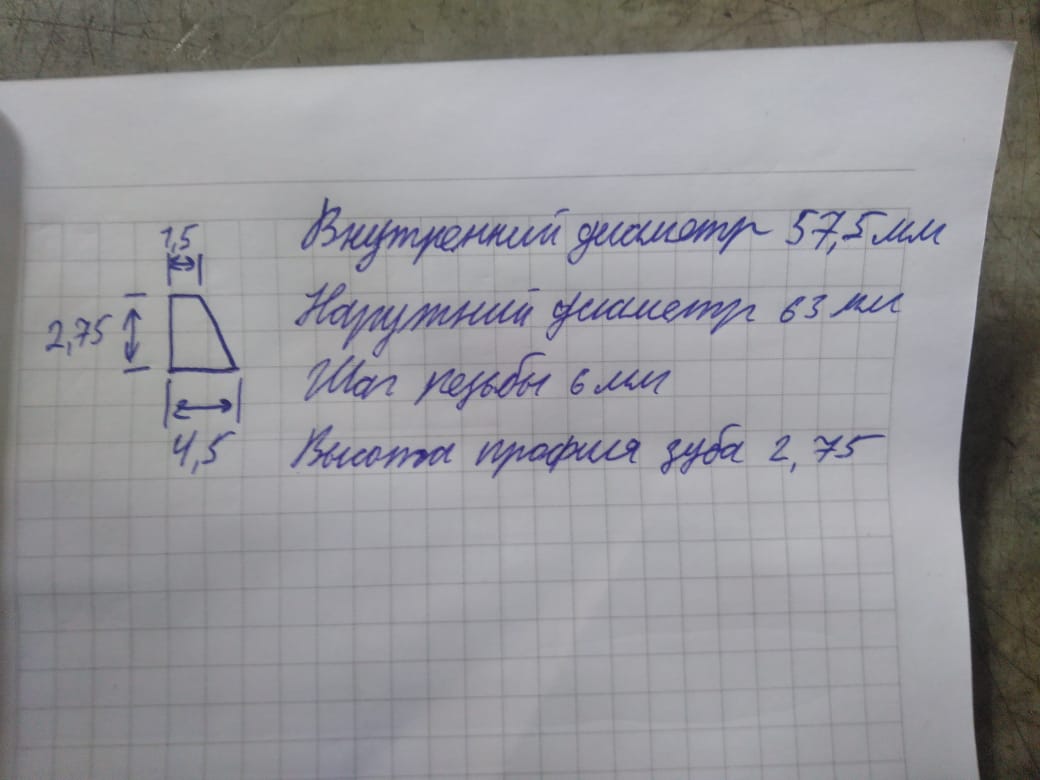 1,5
2,75
4,5
Внутренний диаметр 57,5 мм
Наружний диаметр 63 мм
Шаг резьбы 6 мм
Высота профиля зуба 2,75